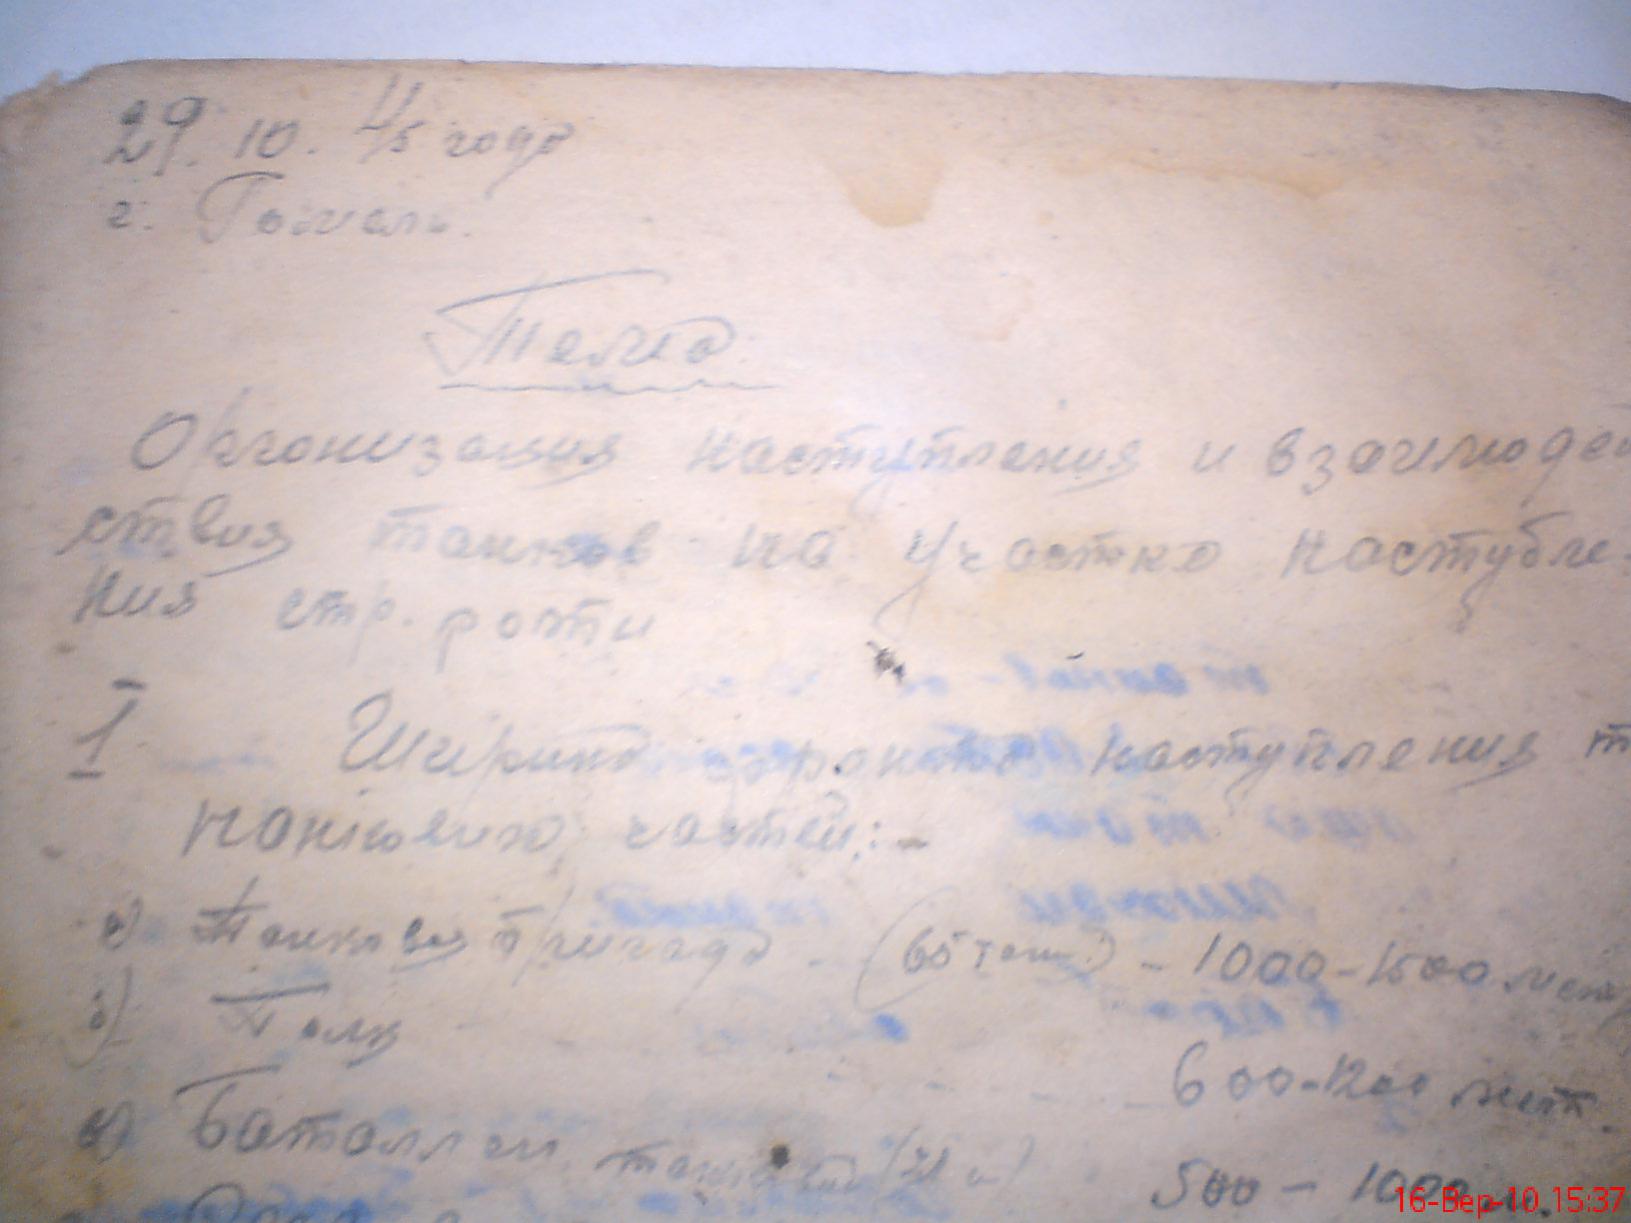 29. 10. 45 года
г. Гомель.
Тема
Организация наступления и взаимодей
ствия танков на участке наступле-
ния стр. роти
I Ширина фронта наступления т
танкових частей:-
а) Танковая бригада - (65 тан.) - 1000-1500 мет
б) Полк 600-1200 мет.
в) Баталлен (21 500 - 1000 м.
16-Вер-10 15:37